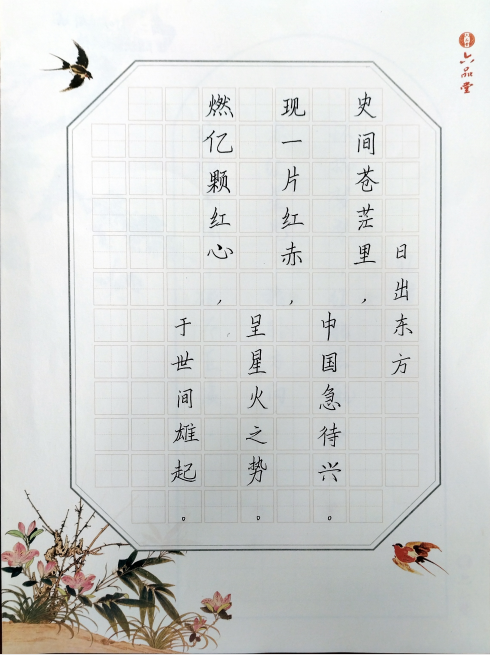 日出东方
史间苍茫里，
中国急待兴。
现一片红赤，
呈星火之势。
燃亿颗红心，
于世间雄起。
六品堂